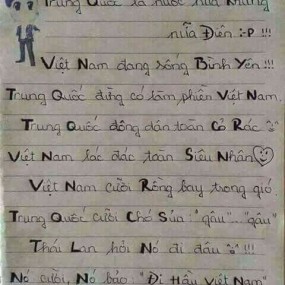 Trung Quốc là nước nửa Khùng
nửa Điên :-P !!!
Việt Nam đang sống Bình Yên !!!
Trung Quốc đừng có làm phiền Việt Nam,
Trung Quốc đông dân toàn Cỏ Rác
Việt Nam lác đác toàn Siêu Nhân
Việt Nam cưỡi Rồng bay trong gió
Trung Quốc cưỡi Chó Sủa "gâu"..."gâu"
Thái Lan hỏi Nó đi đâu !!!
Nó cười, Nó bảo "Đi Hầu Việt Nam"